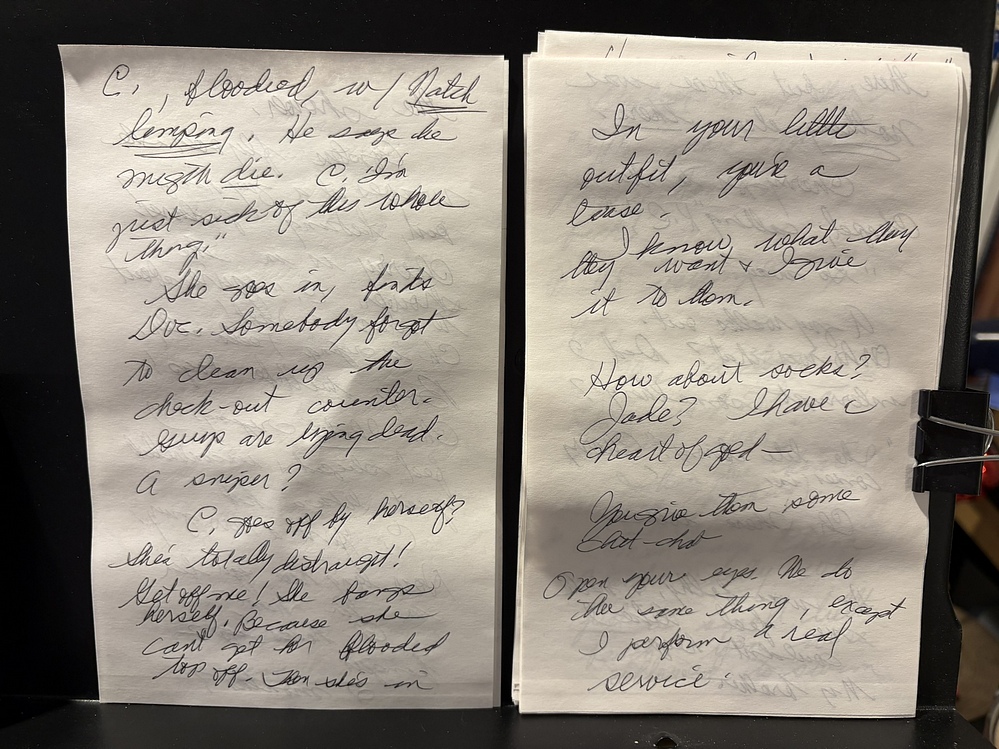 C., blooded, w/ Natch
limping. He says he
migth die. C. I'm
just sick of this whole
thing."
She goes in, finds
Doc. Somebody forgot
to clean up the
check-out counter.
Guys are lying dead.
A sniper?
C. goes off by herself?
She's totally distraught!
Get off me! She bangs
herself. Because she
can't get her blooded
top off. Then she's in
In your little
outfit, you're a
tease.
I know what they
they want & I give
it to them.
How about socks?
Jade? I have a
heart of gold—
You give them some
Open your eyes. We do
the same thing, except
I perform a real
service.